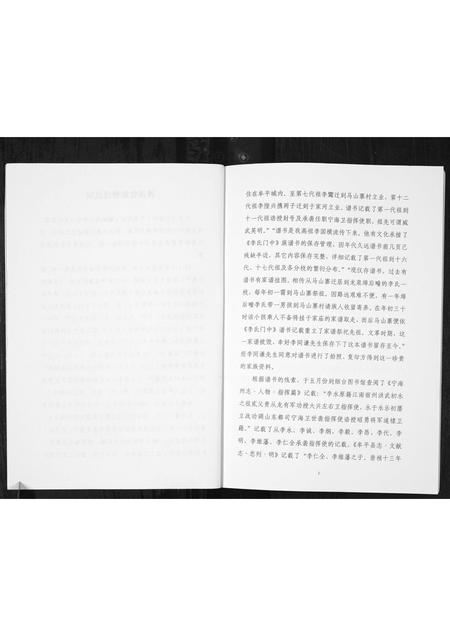 住在牟平城内，至第七代祖李鸞迁到马山寨村立业，第十二
代祖李陞兴携两子迁到于家河立业。谱书记载了第一代祖到
十一代祖诰授封号及承袭任职宁海卫指挥使职，祖先可谓威
武英明。”“谱书是我高祖李国模流传下来，他有文化承接了
《李氏门中》族谱书的保管管理，因年代久远谱书前几页已
残缺半边，其它内容保存完整，详细记载了第一代祖到十六
代、十七代祖及各分枝的繁衍分布。”“现仅存谱书，过去有
谱书有家谱挂图，相传从马山寨迁居到龙泉埠后疃的李氏一
枝，每年初一需到马山寨祭祖，因路远艰难不便，有一年埠
后疃李氏带一男孩到马山寨请族人收留寄养，在年初三十
时该小孩乘人不备将挂于家庙的家谱取走，而后马山寨便依
《李氏门中》谱书记载重立了家谱祭祀先祖。文革时期，这
一家谱被毁，幸好李同谦先生保存下了这本谱书留存至今。”
些李同谦先生同意对谱书进行了拍照，复印方得到这一珍贵
的家族资料。
根据谱书的线索，于五月份到烟台图书馆查阅了《宁海
州志·人物·指挥篇》记载：“李水原籍江南宿州洪武初水
之祖贰父贵从龙有军功授大兴左右卫指挥使，永于永乐初屡
立战功调山东都司宁海卫世袭指挥使诰授昭勇将军遂隶卫
籍。记载了从李永、李诚、李纲、李毅、李昂、李代、李
明、李维藩、李仁全承袭指挥使的记载。《牟平县志·文献
志·忠烈·明》记载了“李仁全、李维藩之子，崇祯十三年
1